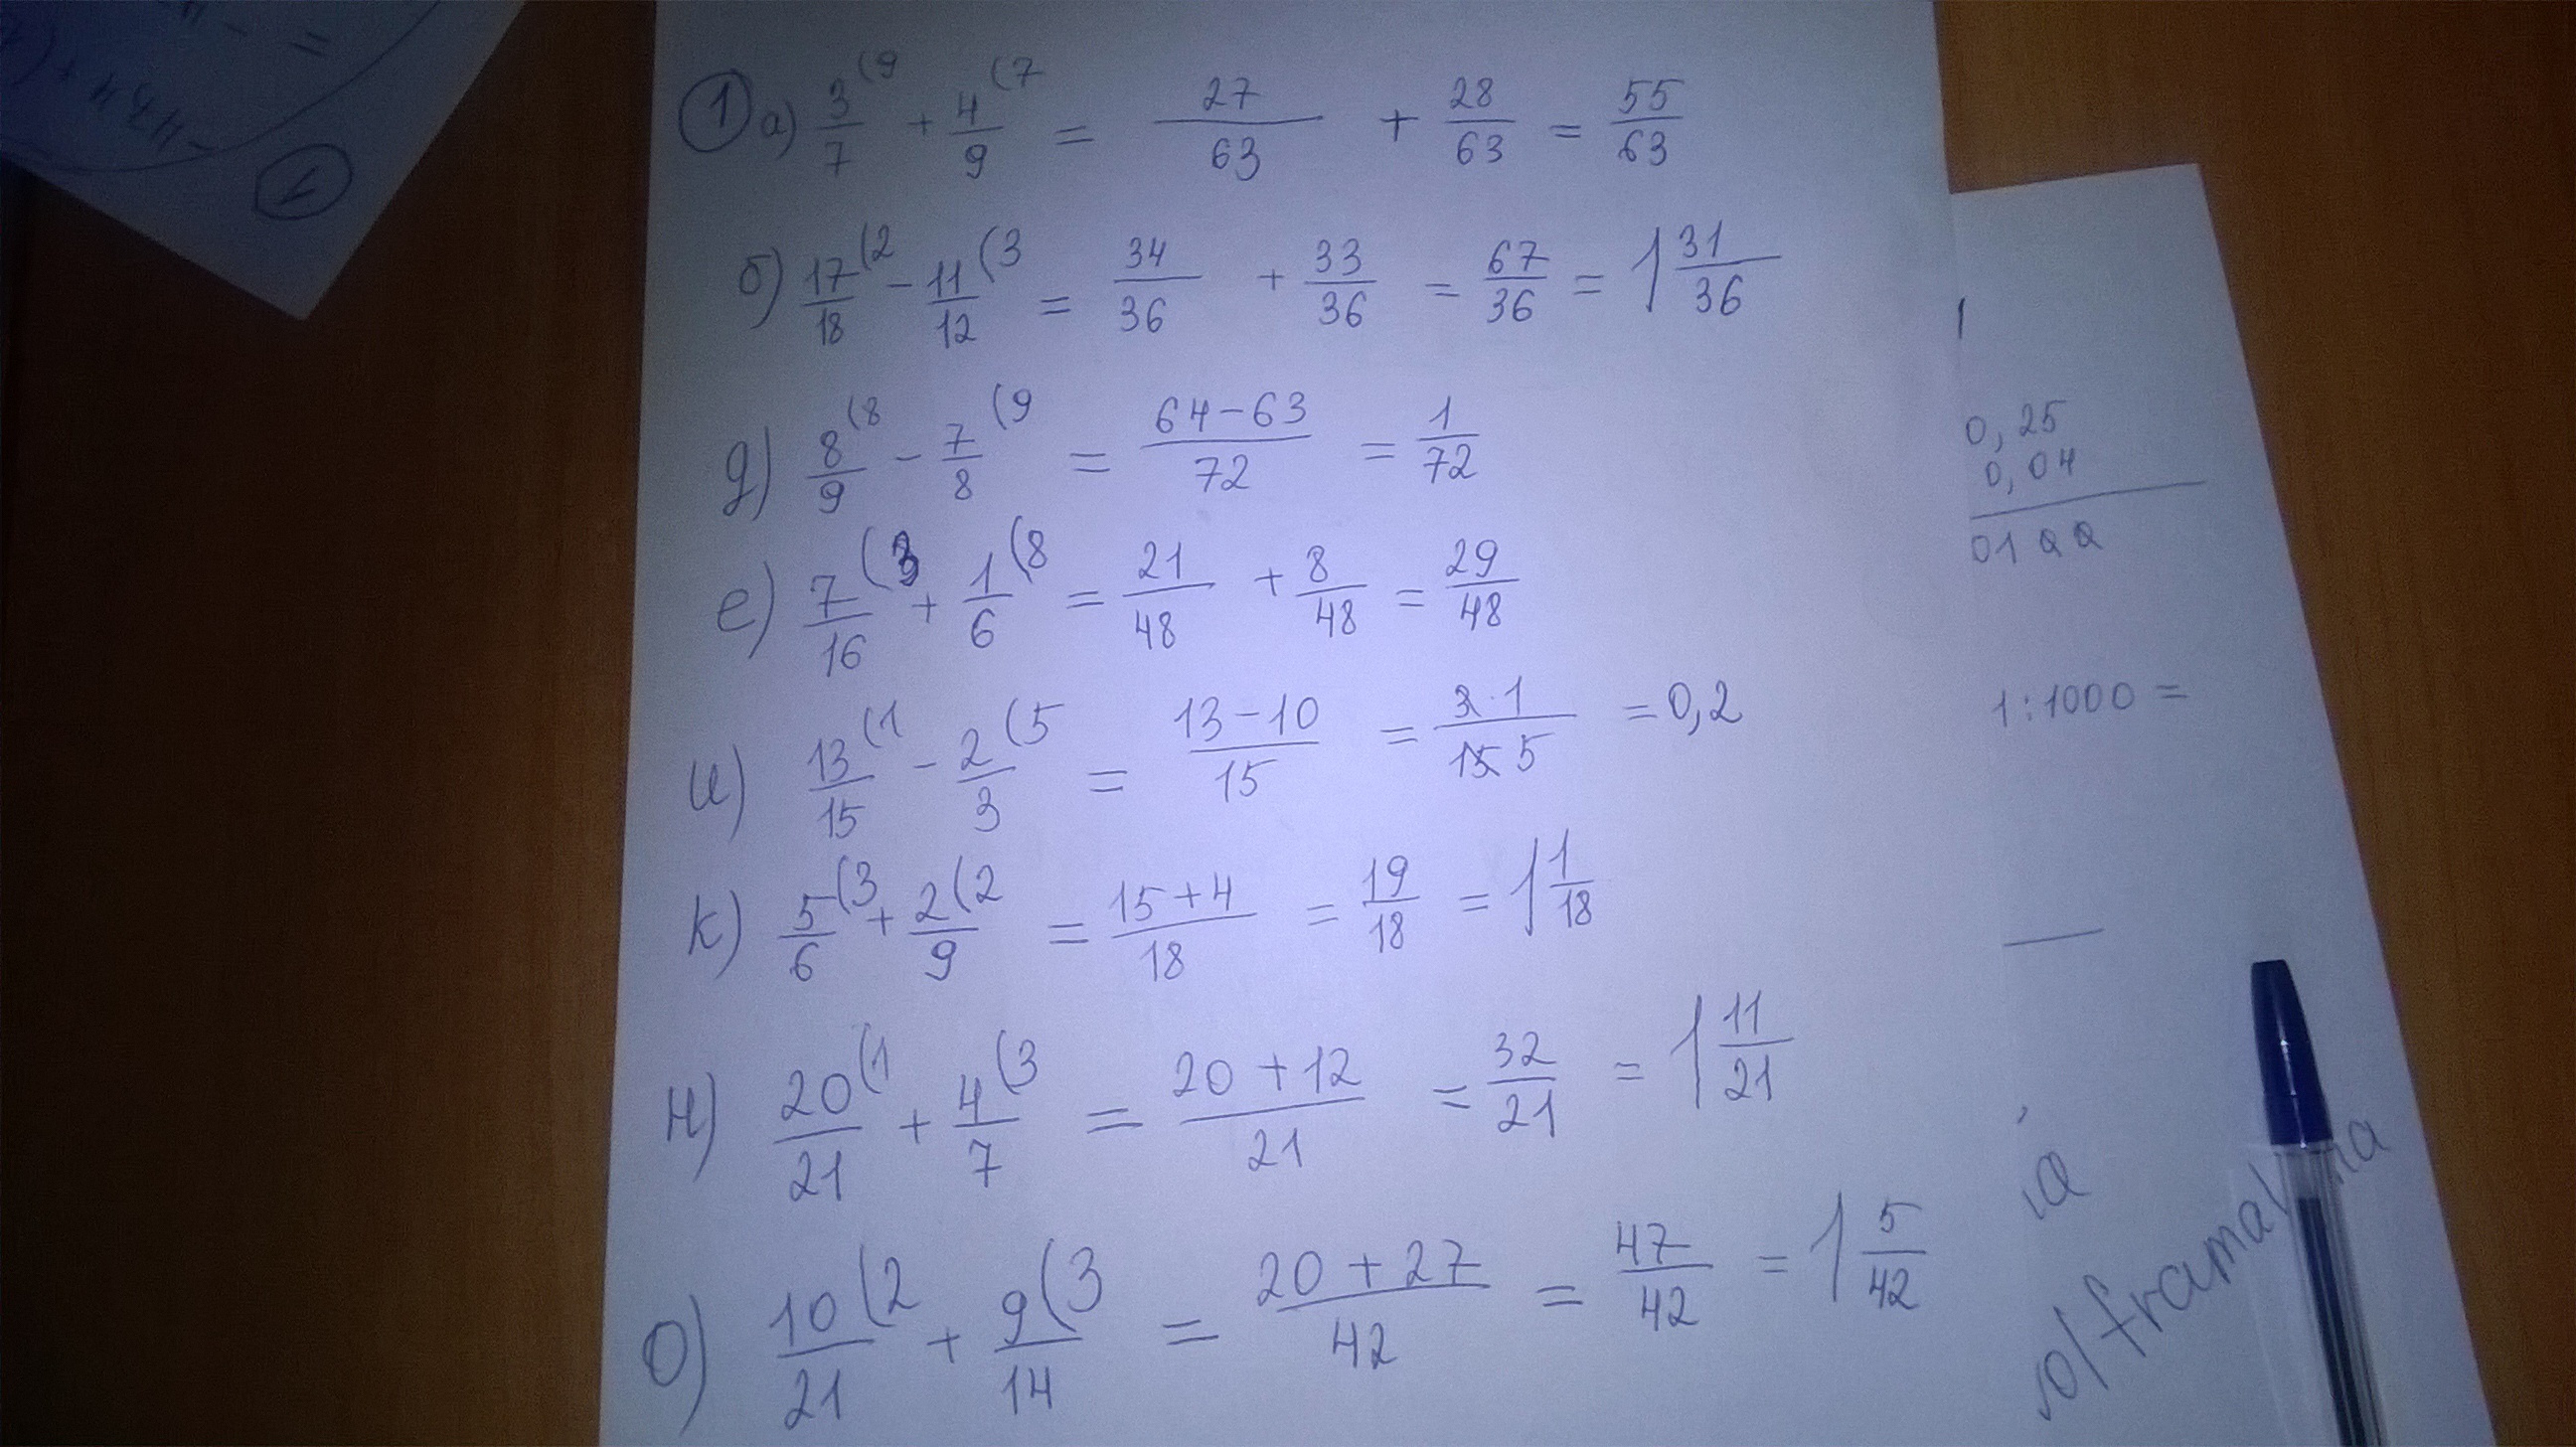 ① а) 3/7 (9 + 4/9 (7 = 27/63 + 28/63 = 55/63
б) 17/18 (2 - 11/12 (3 = 34/36 + 33/36 = 67/36 = 1 31/36
д) 8/9 (8 - 7/8 (9 = 64-63/72 = 1/72
е) 7/16 (3 + 1/6 (8 = 21/48 + 8/48 = 29/48
и) 13/15 (1 - 2/3 (5 = 13-10/15 = 3·1/15 5 = 0,2
к) 5/6 (3 + 2/9 (2 = 15+4/18 = 19/18 = 1 1/18
н) 20/21 (1 + 4/7 (3 = 20+12/21 = 32/21 = 1 11/21
о) 10/21 (2 + 9/14 (3 = 20+27/42 = 47/42 = 1 5/42
0,25
0,04
1:1000 =